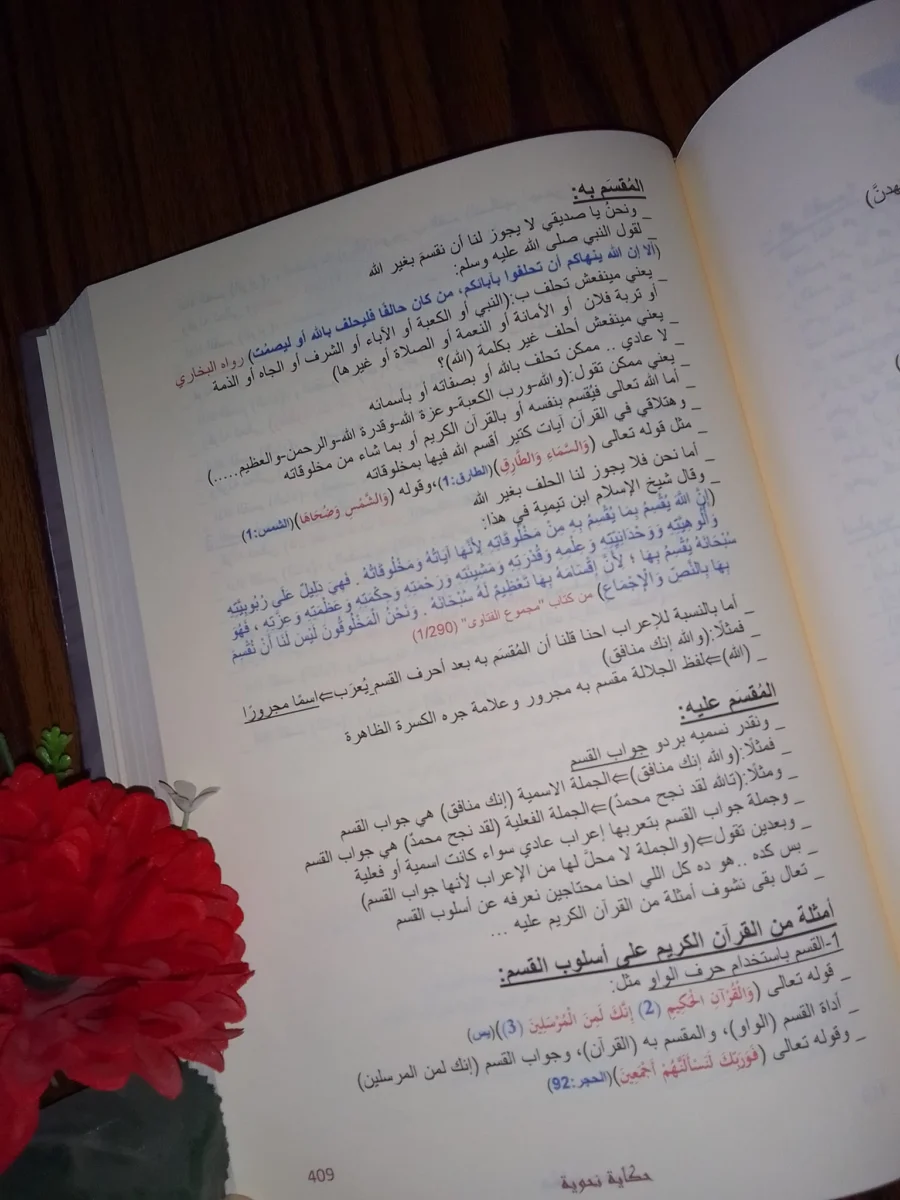 المُقسَم به:
_ ونحنُ يا صديقي لا يجوز لنا أن نقسمَ بغير الله
_ لقول النبي صلى الله عليه وسلم:
(ألا إن الله ينهاكم أن تحلفوا بآبائكم، من كان حالفًا فليحلف بالله أو ليصمُت) رواه البخاري
_ يعني مينفعش تحلف ب:(النبي أو الكعبة أو الآباء أو الشرف أو الجاه أو الذمة
أو تربة فلان أو الأمانة أو النعمة أو الصلاة أو غيرها)
_ يعني مينفعش أحلف غير بكلمة (الله)؟
_ لا عادي .. ممكن تحلف بالله أو بصفاته أو بأسمائه
_ يعني ممكن تقول:(والله-ورب الكعبة-وعزة الله-وقدرة الله-والرحمن-والعظيم.....)
_ أما الله تعالى فيُقسم بنفسه أو بالقرآن الكريم أو بما شاء من مخلوقاته
_ وهتلاقي في القرآن آيات كتير أقسم الله فيها بمخلوقاته
_ مثل قوله تعالى (وَالسَّمَاءِ وَالطَّارِقِ)(الطارق:1)،وقوله (وَالشَّمْسِ وَضُحَاهَا)(الشمس:1)
_ أما نحن فلا يجوز لنا الحلف بغير الله
_ وقال شيخ الإسلام ابن تيمية في هذا:
(إِنَّ اللَّهَ يُقْسِمُ بِمَا يُقْسِمُ بِهِ مِنْ مَخْلُوقَاتِهِ لِأَنَّهَا آيَاتُهُ وَمَخْلُوقَاتُهُ . فَهِيَ دَلِيلٌ عَلَى رُبُوبِيَّتِهِ
وَأُلُوهِيَّتِهِ وَوَحْدَانِيَّتِهِ وَعِلْمِهِ وَقُدْرَتِهِ وَمَشِيئَتِهِ وَرَحْمَتِهِ وَحِكْمَتِهِ وَعَظَمَتِهِ وَعِزَّتِهِ ، فَهُوَ
سُبْحَانَهُ يُقْسِمُ بِهَا ؛ لِأَنَّ إِقْسَامَهُ بِهَا تَعْظِيمٌ لَهُ سُبْحَانَهُ . وَنَحْنُ الْمَخْلُوقُونَ لَيْسَ لَنَا أَنْ نُقْسِمَ
بِهَا بِالنَّصِّ وَالْإِجْمَاعِ) من كتاب "مجموع الفتاوى" (1/290)
_ أما بالنسبة للإعراب احنا قلنا أن المُقسَم به بعد أحرف القسم يُعرَب⇐اسمًا مجرورًا
_ فمثلًا:(والله إنك منافق)
_ (الله)⇐لفظ الجلالة مقسم به مجرور وعلامة جره الكسرة الظاهرة
المُقسَم عليه:
_ ونقدر نسميه بردو جواب القسم
_ فمثلًا:(والله إنك منافق)⇐الجملة الاسمية (إنك منافق) هي جواب القسم
_ ومثلًا:(تالله لقد نجح محمدٌ)⇐الجملة الفعلية (لقد نجح محمدٌ) هي جواب القسم
_ وجملة جواب القسم بتعربها إعراب عادي سواء كانت اسمية أو فعلية
_ وبعدين تقول⇐(والجملة لا محلّ لها من الإعراب لأنها جواب القسم)
_ بس كده .. هو ده كل اللي احنا محتاجين نعرفه عن أسلوب القسم
_ تعال بقى نشوف أمثلة من القرآن الكريم عليه ...
أمثلة من القرآن الكريم على أسلوب القسم:
1-القسم باستخدام حرف الواو مثل:
_ قوله تعالى (وَالْقُرْآنِ الْحَكِيمِ (2) إِنَّكَ لَمِنَ الْمُرْسَلِينَ (3))(يس)
_ أداة القسم (الواو)، والمقسم به (القرآن)، وجواب القسم (إنك لمن المرسلين)
_ وقوله تعالى (فَوَرَبِّكَ لَنَسْأَلَنَّهُمْ أَجْمَعِينَ)(الحجر:92)
حكاية نحوية
409